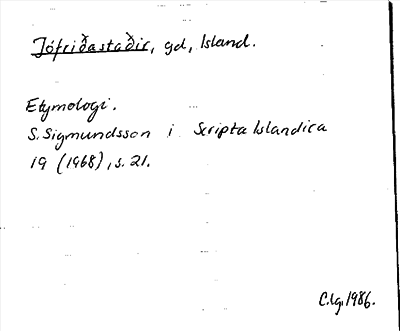 Jófriðastaðir, gd, Island.
Etymologi.
S. Sigmundsson i Scripta Islandica
19 (1968), s. 21.
C.lg. 1986.